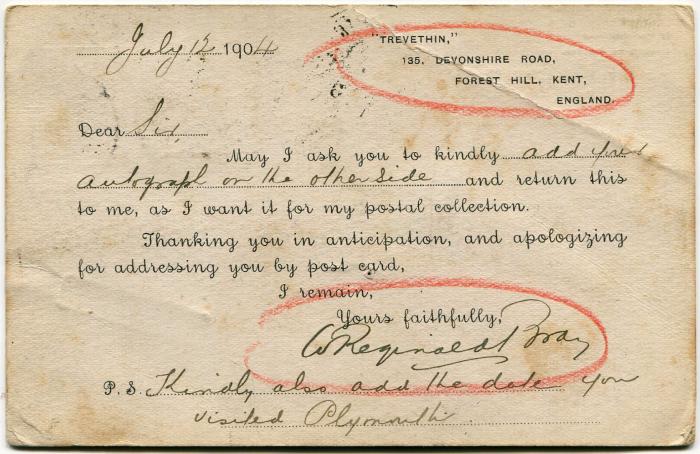 July 12 1904
"TREVETHIN,"
135, DEVONSHIRE ROAD,
FOREST HILL, KENT,
ENGLAND.
Dear Sir,
May I ask you to kindly add your
autograph on the other side and return this
to me, as I want it for my postal collection.
Thanking you in anticipation, and apologizing
for addressing you by post card,
I remain,
Yours faithfully,
W Reginald Bray
P.S. Kindly also add the date you
visited Plymouth.